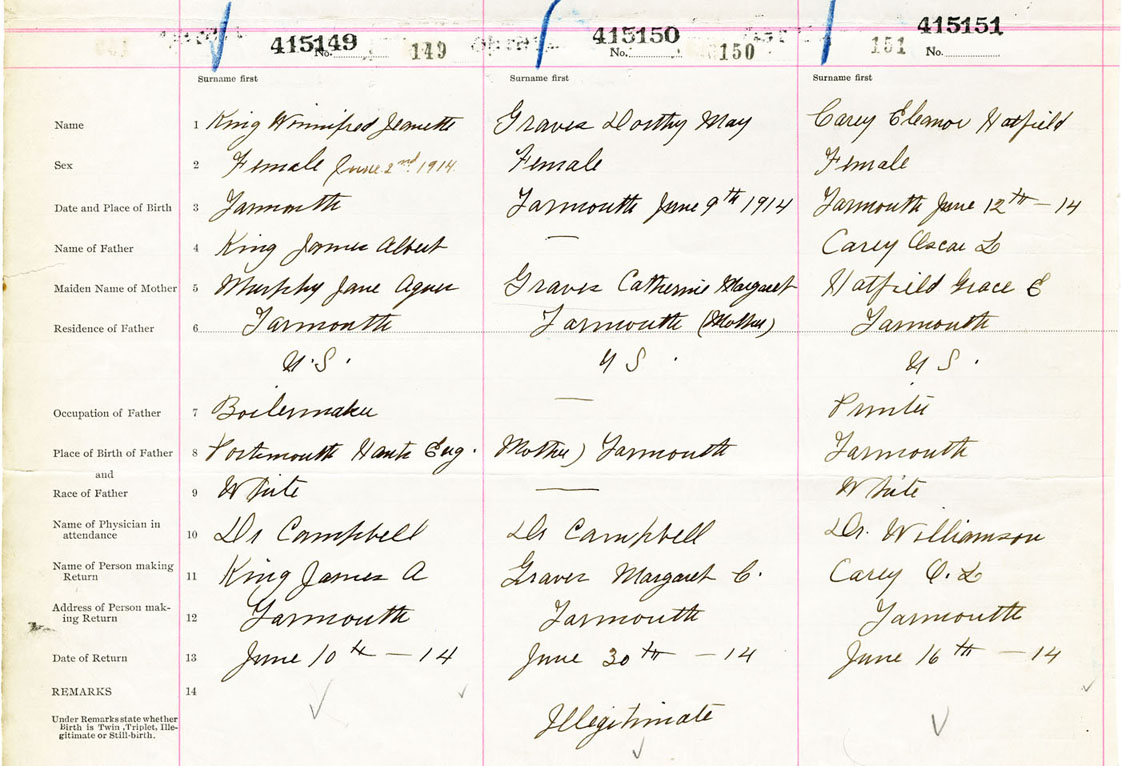 415149 149 415150 150 151 415151
No. No. No.
Surname first Surname first Surname first
Name 1 King Winnifred Jeanette Graves Dorthy May Carey Eleanor Hatfield
Sex 2 Female June 2nd 1914 Female Female
Date and Place of Birth 3 Yarmouth Yarmouth June 9th 1914 Yarmouth June 12th - 14
Name of Father 4 King James Albert — Carey Oscar L
Maiden Name of Mother 5 Murphy Jane Agnes Graves Catherine Margaret Hatfield Grace E
Residence of Father 6 Yarmouth Yarmouth (Mother) Yarmouth
N.S. N S. N S.
Occupation of Father 7 Boilermaker — Printer
Place of Birth of Father 8 Portsmouth Hants Eng. Mother) Yarmouth Yarmouth
and
Race of Father 9 White — White
Name of Physician in
attendance 10 Dr Campbell Dr Campbell Dr. Williamson
Name of Person making
Return 11 King James A Graves Margaret C. Carey O. L
Address of Person mak-
ing Return 12 Yarmouth Yarmouth Yarmouth
Date of Return 13 June 10th - 14 June 30th - 14 June 16th - 14
REMARKS 14
Under Remarks state whether
Birth is Twin, Triplet, Ille-
gitimate or Still-birth. Illegitimate